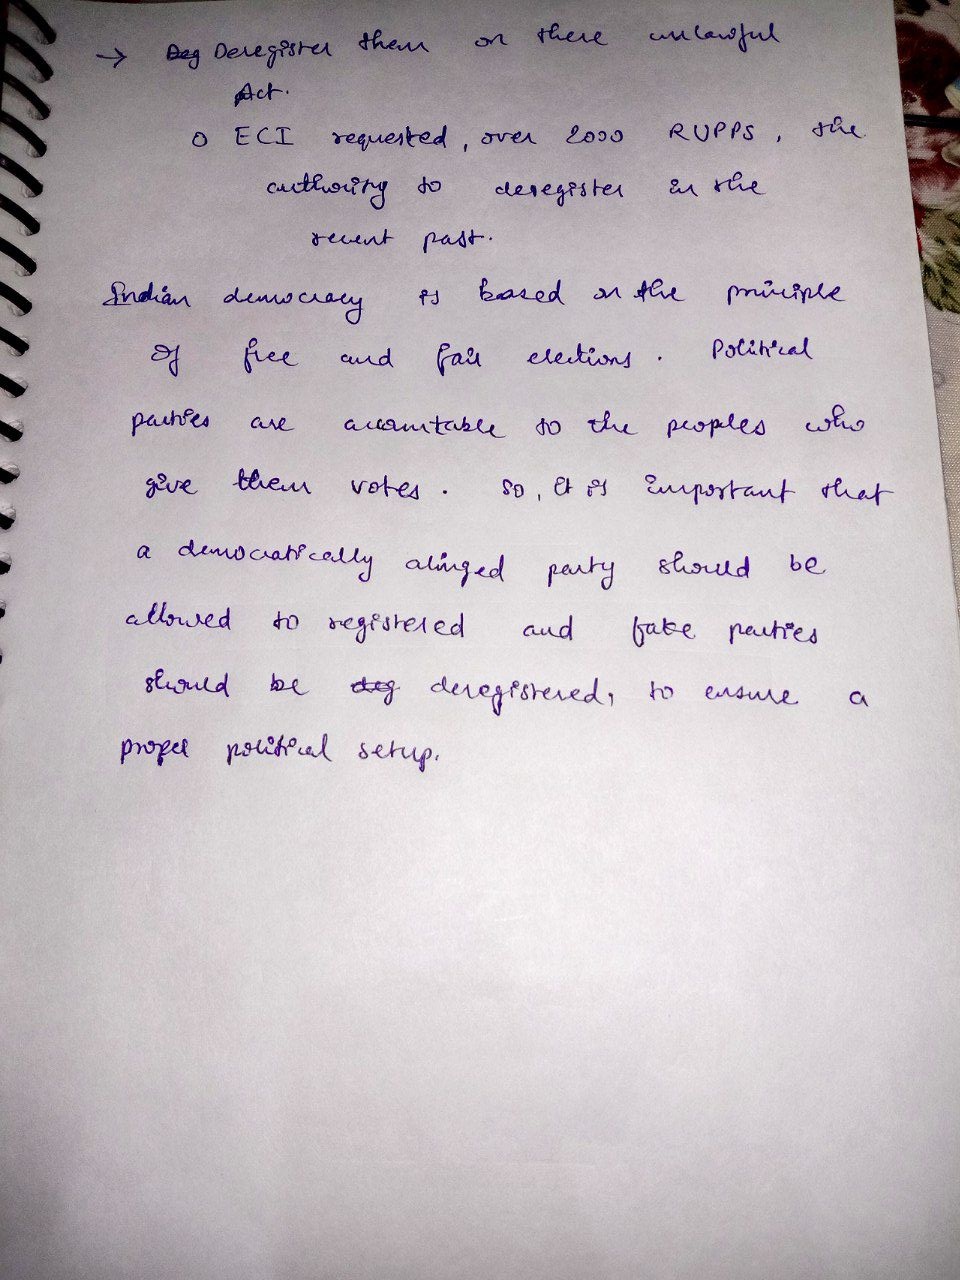 → Deg Deregister them on there unlawful
Act.
o ECI requested, over 2000 RUPPS, the
authority to deregister in the
recent past.
Indian democracy is based on the principle
of free and fair elections. Political
parties are accountable to the peoples who
give them votes. So, it is important that
a democratically alinged party should be
allowed to registered and fake parties
should be deg deregistered, to ensure a
proper political setup.